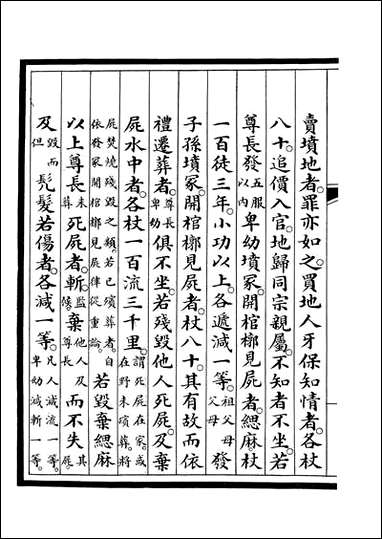 賣墳地者。罪亦如之。買地人牙保知情者。各杖
八十。追價入官。地歸同宗親屬。不知者不坐。若
尊長發五服以內卑幼墳冢。開棺槨見屍者。緦麻。杖
一百徒三年。小功以上。各遞減一等。祖父母父母發
子孫墳冢。開棺槨見屍者。杖八十。其有故而依
禮遷葬者。尊長卑幼俱不坐。若殘毀他人死屍。及棄
屍水中者。各杖一百流三千里。謂死屍在家。或在野未殯葬。將
屍焚燒殘毀之類。若已殯葬者。自依發冢開棺槨見屍律從重論。若毀棄緦麻
以上尊長未葬死屍者。斬。監候。棄他人及尊長而不失其屍。
及毀而但髡髮若傷者。各減一等。凡人減流一等。卑幼減斬一等。